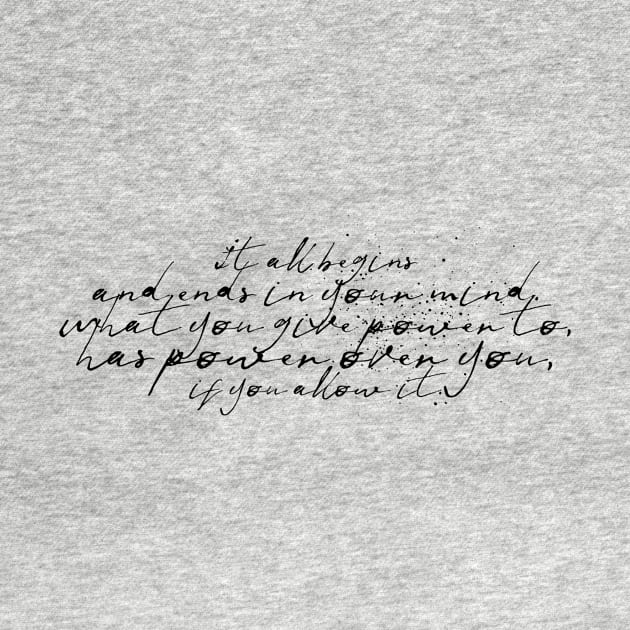 It all begins
and ends in your mind.
what you give power to,
has power over you,
if you allow it.